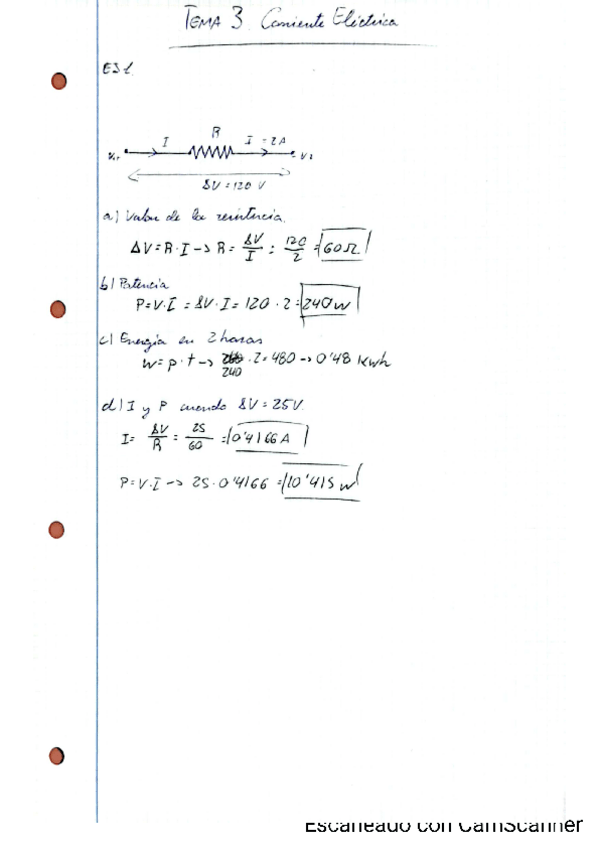 TEMA 3. Corriente Eléctrica
EJ1
R
I
I = 2A
V1
V2
ΔV = 120 V
a) Valor de la resistencia
ΔV = R · I → R = ΔV/I = 120/2 = 60Ω
b) Potencia
P = V · I = ΔV · I = 120 · 2 = 240 W
c) Energía en 2 horas
W = P · t → 240 · 2 = 480 → 0'48 Kwh
d) I y P cuando ΔV = 25V
I = ΔV/R = 25/60 = 0'4166 A
P = V · I → 25 · 0'4166 = 10'415 W
Escaneado con CamScanner